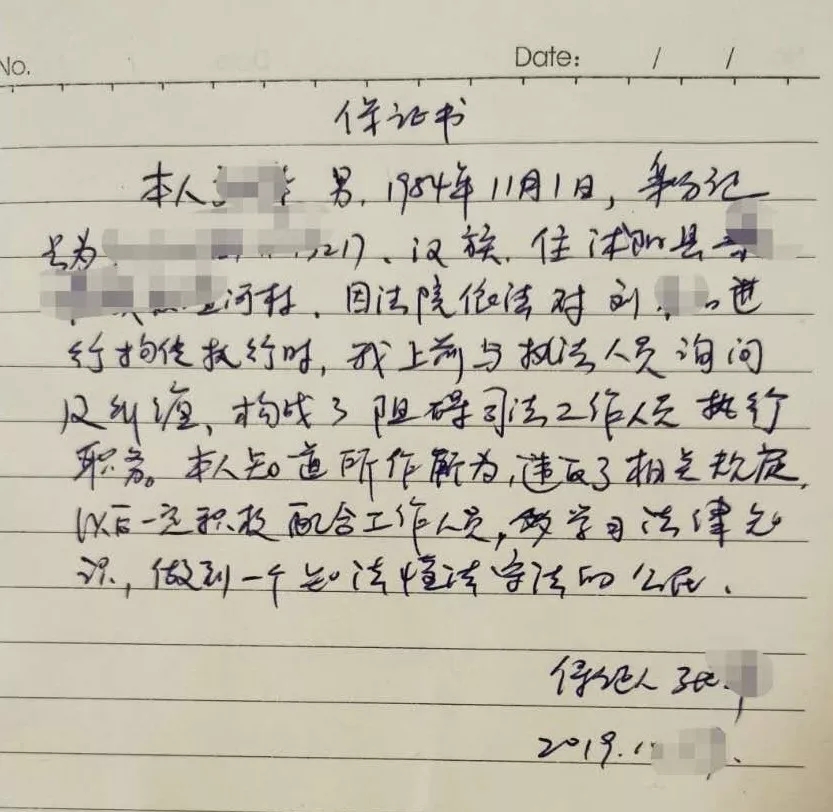 No.
Date: / /
保证书
本人 男,1984年11月1日,身份证
号为 217、汉族,住沭阳县
河村,因法院依法对刘 进
行拘传执行时,我上前与执法人员询问
及纠缠,构成了阻碍司法工作人员执行
职务。本人知道所作所为,违反了相关规定,
以后一定积极配合工作人员,做学习法律知
识,做到一个知法懂法守法的公民.
保证人 张
2019.1